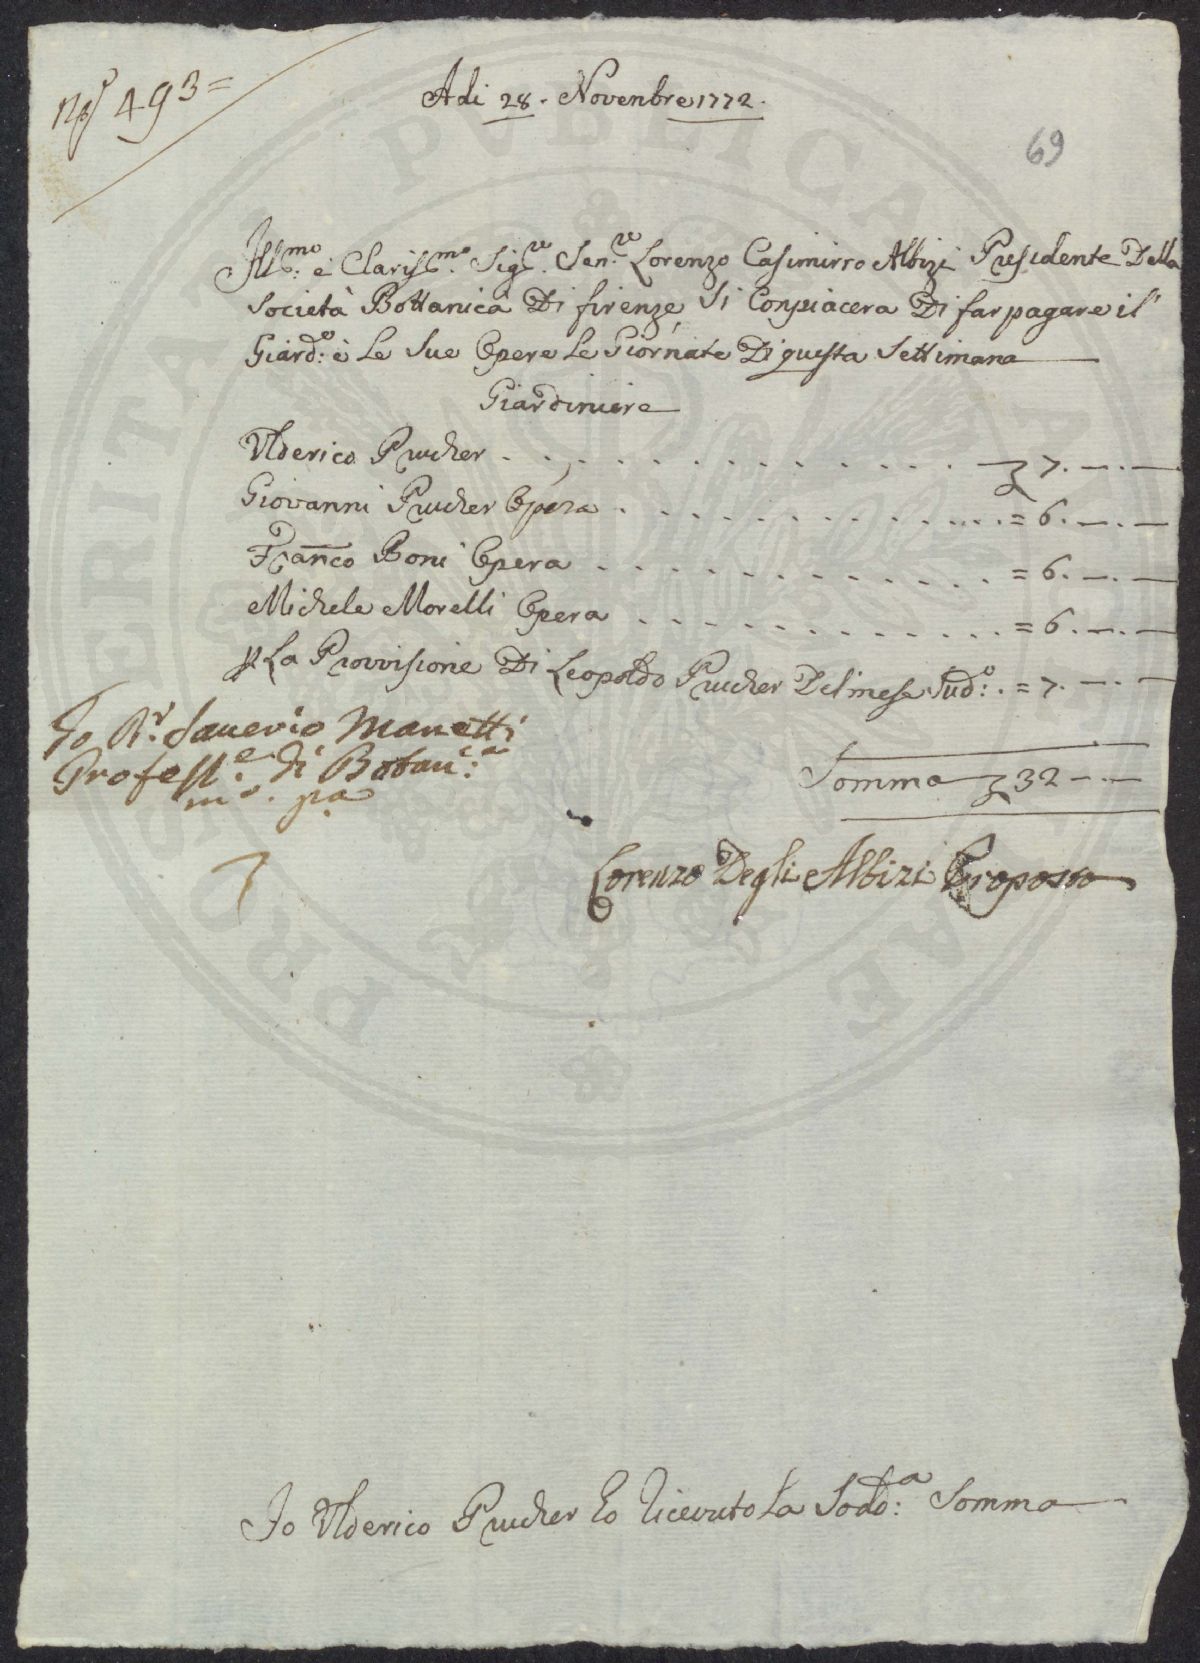 No 493=
Adi 28. Novenbre 1772.
69
Ill.mo e Clariss.mo Sig.re Sen.re Lorenzo Casimirro Albizi Presidente Della
Società Bottanica Di firenze, Si Conpiacera Di far pagare il
Giard.o è Le Sue Opere Le Giornate Di questa Settimana
Giardiniere
Vlderico Prucher . . . . . . . . . . . . 7. —. —
Giovanni Prucher Opera . . . . . . . . . . . . = 6. —. —
Franco Boni Opera . . . . . . . . . . . . = 6. —. —
Michele Morelli Opera . . . . . . . . . . . . = 6. —. —
p La Provvisione Di Leopoldo Prucher Del mese Sud.o: . = 7. —. —
Io D.r Saverio Manetti
Profess.e di Botan.ca
m.o p.a
Somma 32 —. —
Lorenzo Degli Albizi Proposto
Io Vlderico Prucher Ho Ricevuto La Sodd.a: Somma
PROSPERITATI PVBLICAE AVGENDAE